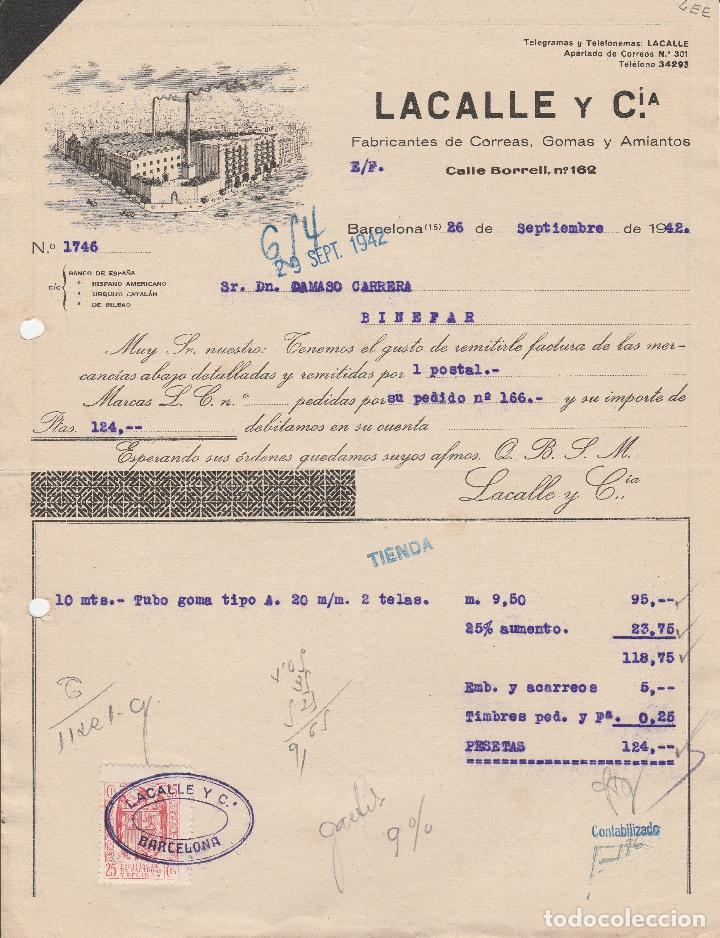 LEE
Telegramas y Telefonemas: LACALLE
Apartado de Correos N.º 301
Teléfono 34293
LACALLE Y C.ÍA
Fabricantes de Correas, Gomas y Amiantos
E/P. Calle Borrell, nº 162
Barcelona (15) 26 de Septiembre de 1942.
614
29 SEPT. 1942
N.º 1746
c/c BANCO DE ESPAÑA
" HISPANO AMERICANO
" URQUIJO CATALÁN
" DE BILBAO
Sr. Dn. DAMASO CARRERA
BINEFAR
Muy Sr. nuestro: Tenemos el gusto de remitirle factura de las mer-
cancías abajo detalladas y remitidas por 1 postal.-
Marcas L. C. n.º pedidas por su pedido nº 166.- y su importe de
Ptas. 124,-- debitamos en su cuenta
Esperando sus órdenes quedamos suyos afmos. Q. B. S. M.
Lacalle y Cía.
TIENDA
10 mts.- Tubo goma tipo A. 20 m/m. 2 telas. m. 9,50 95,--
25% aumento. 23,75
118,75
Emb. y acarreos 5,--
Timbres ped. y Fª. 0,25
PESETAS 124,--
9,65
9%
LACALLE Y C.ª
BARCELONA
25 Cts
Contabilizado